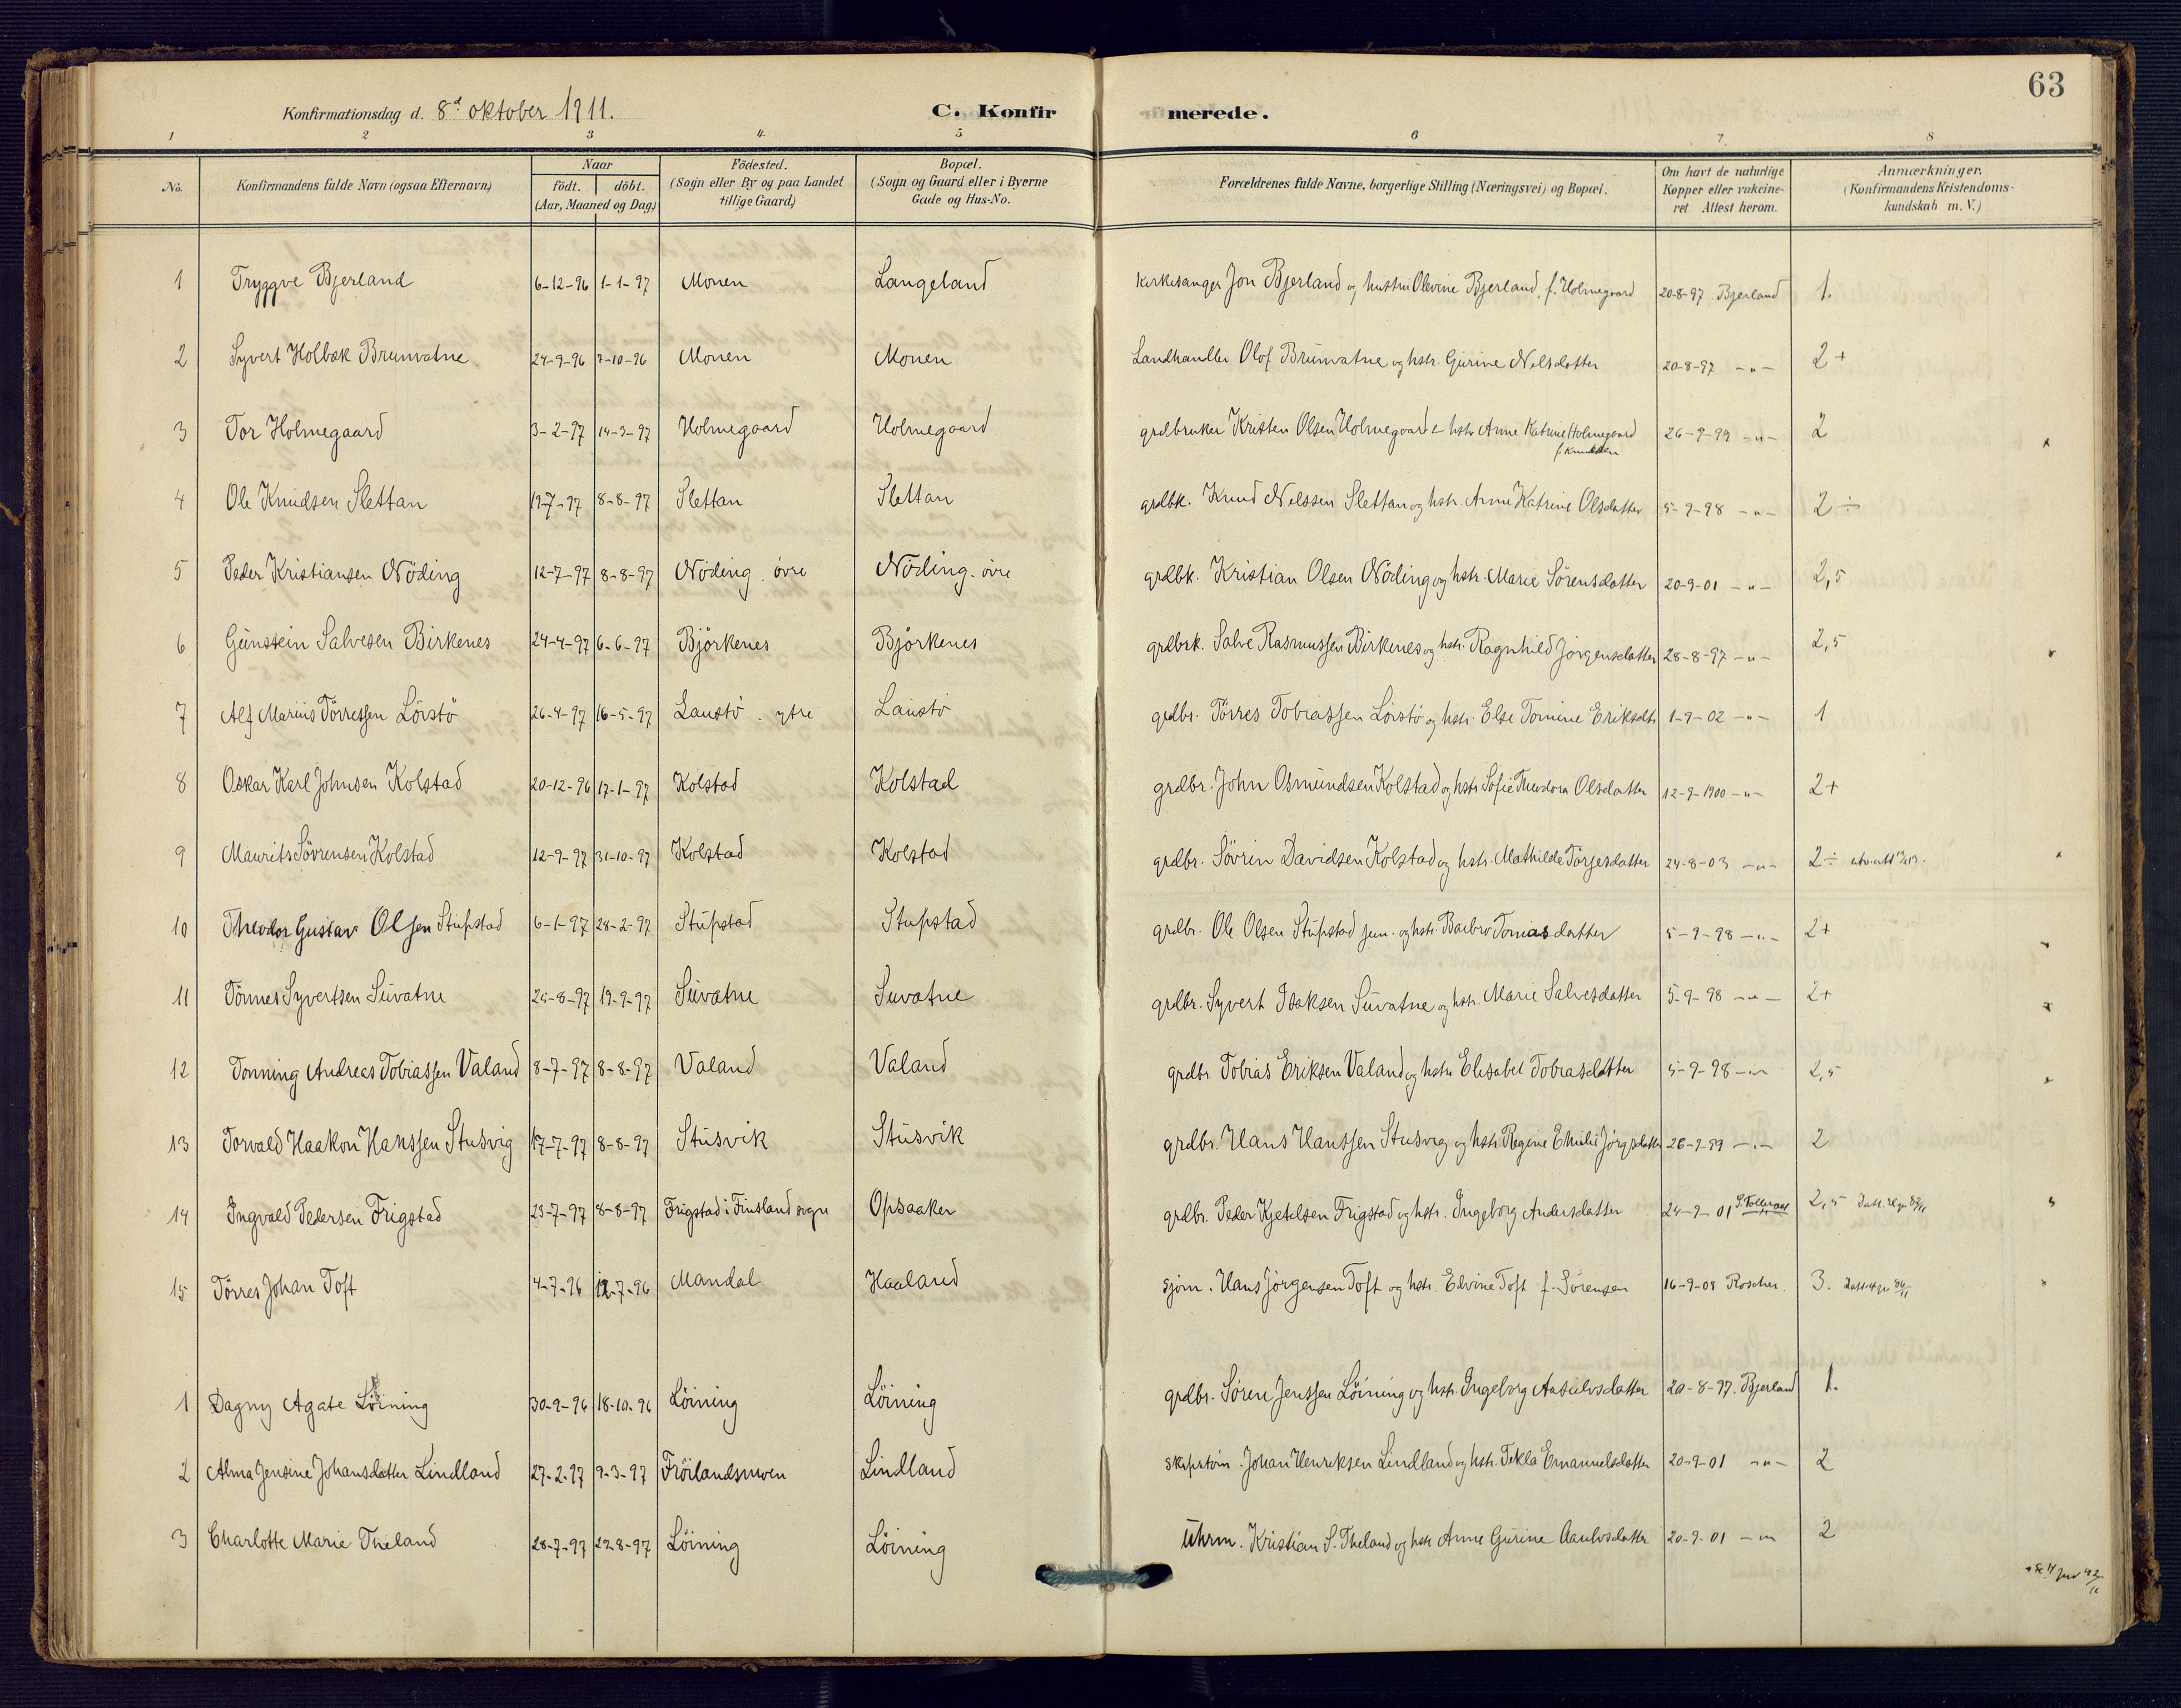 63
Konfirmationsdag d. 8d oktober 1911. C. Konfirmerede.
1 2 3 4. 5 6 7. 8
No. Konfirmandens fulde Navn (ogsaa Efternavn) Naar födt. döbt. (Aar, Maaned og Dag) Födested. (Sogn eller By og paa Landet tillige Gaard) Bopæl. (Sogn og Gaard eller i Byerne Gade og Hus-No. Forældrenes fulde Navne, borgerlige Stilling (Næringsvei) og Bopæl. Om havt de naturlige Kopper eller vakcineret. Attest herom. Anmærkninger. (Konfirmandens Kristendomskundskab m. V.)
1 Tryggve Bjerland 6-12-96 1-1-97 Monen Langeland Kirkesanger Jon Bjerland og hustru Olevine Bjerland, f. Holmegaard 20-8-97 Bjerland 1.
2 Syvert Holbæk Brunvatne 24-9-96 7-10-96 Monen Monen Landhandler Olof Brunvatne og hstr. Gurine Nilsdatter 20-8-97 -"- 2+
3 Tor Holmegaard 3-2-97 14-3-97 Holmegaard Holmegaard grdbruker Kristen Olsen Holmegaard & hstr Anne Katrine Holmegaard f. Knudsen 26-9-99 -"- 2
4 Ole Knudsen Slettan 19-7-97 8-8-97 Slettan Slettan grdbk. Knud Nilssen Slettan og hstr. Anne Katrine Olsdatter 5-9-98 -"- 2÷
5 Peder Kristiansen Nöding 12-7-97 8-8-97 Nöding. övre Nöding. övre grdbk. Kristian Olsen Nöding og hstr. Marie Sörensdatter 20-9-01 -"- 2,5
6 Gunstein Salvesen Birkenes 24-4-97 6-6-97 Björkenes Björkenes grdbrk. Salve Rasmussen Birkenes og hstr. Ragnhild Jörgensdatter 28-8-97 -"- 2,5
7 Alf Marius Törressen Löistö 26-4-97 16-5-97 Laustö. ytre Laustö grdbr. Törres Tobiassen Löistö og hstr. Else Tomine Eriksdtr 1-9-02 -"- 1
8 Oskar Karl Johnsen Kolstad 20-12-96 17-1-97 Kolstad Kolstad grdbr. John Osmundsen Kolstad og hstr Sofie Theodora Olsdatter 12-9-1900 -"- 2+
9 Maurits Sövrensen Kolstad 12-9-97 31-10-97 Kolstad Kolstad grdbr. Sövrin Davidsen Kolstad og hstr. Mathilde Törjesdatter 24-8-03 -"- 2÷
10 Theodor Gustav Olsen Stupstad 6-1-97 28-2-97 Stupstad Stupstad grdbr. Ole Olsen Stupstad jun. og hstr. Barbro Tomasdatter 5-9-98 -"- 2+
11 Tönnes Syvertsen Suvatne 25-8-97 19-9-97 Suvatne Suvatne grdbr. Syvert Isaksen Suvatne og hstr. Marie Salvesdatter 5-9-98 -"- 2+
12 Tonning Andreas Tobiassen Valand 8-7-97 8-8-97 Valand Valand grdbr. Tobias Eriksen Valand og hstr. Elisabet Tobiasdatter 5-9-98 -"- 2,5
13 Torvald Haakon Hanssen Stusvig 17-7-97 8-8-97 Stusvik Stusvik grdbr. Hans Hanssen Stusvig og hstr. Regine Emilie Jörgsdatter 26-9-99 -"- 2
14 Ingvald Pedersen Frigstad 23-7-97 8-8-97 Frigstad i Finsland sogn Opsaaker grdbr. Peder Kjetelsen Frigstad og hstr. Ingeborg Andersdatter 24-9-01 2,5
15 Törres Johan Toft 4-7-96 12-7-96 Mandal Haaland sjöm. Hans Jörgensen Toft og hstr. Edvine Toft f. Sörensen 16-9-08 Roscher. 3.
1 Dagny Agate Löining 30-9-96 18-10-96 Löining Löining grdbr. Sören Jenssen Löining og hstr. Ingeborg Aasulvsdatter 20-8-97. Bjerland 1.
2 Alma Jensine Johansdatter Lindland 27-2-97 9-3-97 Fröilandsmoen Lindland skipstöm. Johan Henriksen Lindland og hstr. Tekla Emanuelsdatter 20-9-01 -"- 2
3 Charlotte Marie Theland 28-7-97 22-8-97 Löining Löining Uhrm. Kristian S. Theland og hstr Anne Gurine Aasulvsdatter 20-9-01 -"- 2